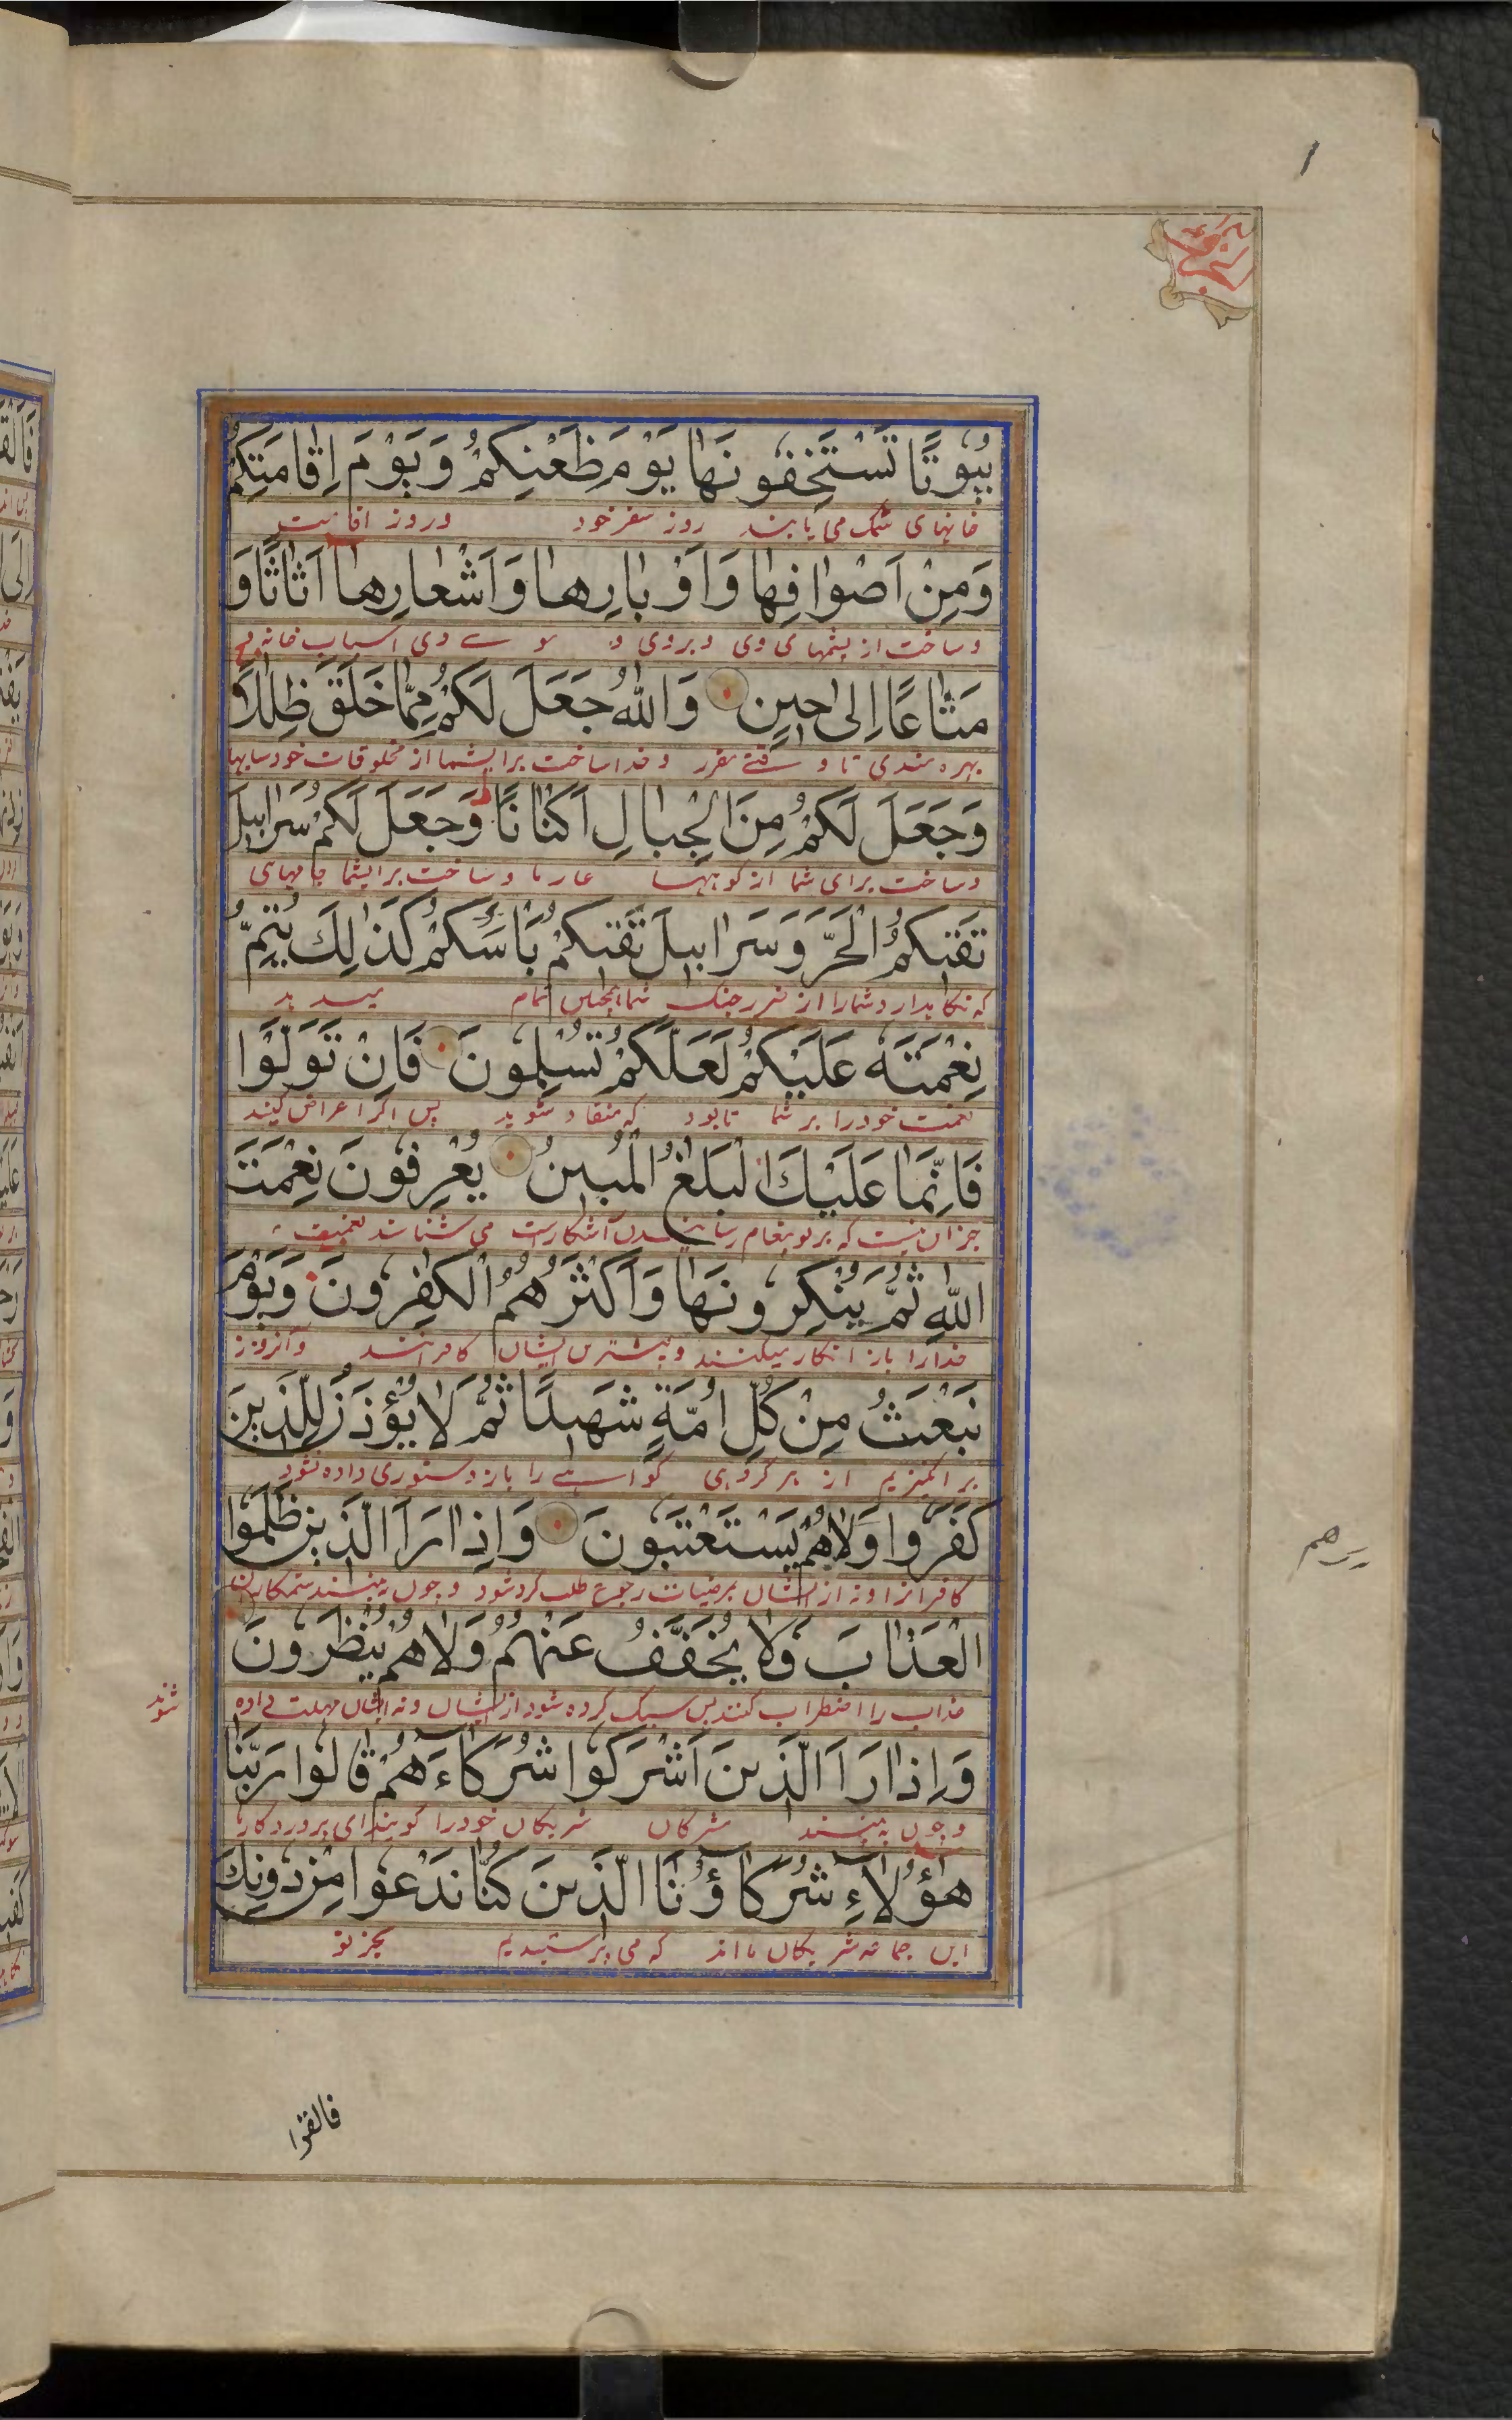 بُيُوتًا تَسْتَخِفُّونَهَا يَوْمَ ظَعْنِكُمْ وَيَوْمَ إِقَامَتِكُمْ
خانهای سبک می یابند روز سفر خود وروز اقامت
وَمِنْ أَصْوَافِهَا وَأَوْبَارِهَا وَأَشْعَارِهَا أَثَاثًا وَ
وساخت از پشمهای وی و بروی و وی اسباب خانه
مَتَاعًا إِلَىٰ حِينٍ وَاللَّهُ جَعَلَ لَكُمْ مِمَّا خَلَقَ ظِلَالًا
بهره مندی تا وقتے مقرر و خدا ساخت برایشما از مخلوقات خود سایها
وَجَعَلَ لَكُمْ مِنَ الْجِبَالِ أَكْنَانًا ط وَجَعَلَ لَكُمْ سَرَابِيلَ
وساخت برای شما از کوهها غارها وساخت برایشما جامهای
تَقِيكُمُ الْحَرَّ وَسَرَابِيلَ تَقِيكُمْ بَأْسَكُمْ كَذَٰلِكَ يُتِمُّ
که نگاهدارد شمارا از ضرر جنک شما همچنین تمام میدهد
نِعْمَتَهُ عَلَيْكُمْ لَعَلَّكُمْ تُسْلِمُونَ فَإِنْ تَوَلَّوْا
نعمت خود را بر شما تا بود که منقاد شوید پس اگر اعراض کنند
فَإِنَّمَا عَلَيْكَ الْبَلٰغُ الْمُبِينُ يَعْرِفُونَ نِعْمَتَ
جز این نیست که بر تو پیغام رسانیدن آشکارست می شناسند نعمت
اللَّهِ ثُمَّ يُنْكِرُونَهَا وَأَكْثَرُهُمُ الْكٰفِرُونَ وَيَوْمَ
خدا را باز انکار میکنند و بیشترین ایشان کافرانند و آنروز
نَبْعَثُ مِنْ كُلِّ أُمَّةٍ شَهِيدًا ثُمَّ لَا يُؤْذَنُ لِلَّذِينَ
بر انگیزیم از هر گروهی گواهے را باز دستوری داده نشود
كَفَرُوا وَلَا هُمْ يُسْتَعْتَبُونَ وَإِذَا رَأَ الَّذِينَ ظَلَمُوا
کافرانرا و نه از ایشان برضیات رجوع طلب کرد شود و چون بینند ستمکاران
الْعَذَابَ فَلَا يُخَفَّفُ عَنْهُمْ وَلَا هُمْ يُنْظَرُونَ
عذاب را اضطراب کنند پس سبک کرده شود از ایشان و نه ایشان مهلت داده
شوند
وَإِذَا رَأَ الَّذِينَ أَشْرَكُوا شُرَكَاءَهُمْ قَالُوا رَبَّنَا
و چون به بینند مشرکان شریکان خود را گویند ای پروردگار ما
هٰؤُلَاءِ شُرَكَاؤُنَا الَّذِينَ كُنَّا نَدْعُوا مِنْ دُونِكَ
این جماعه شریکان ما اند که می پرستیدیم بجز تو
فالقوا